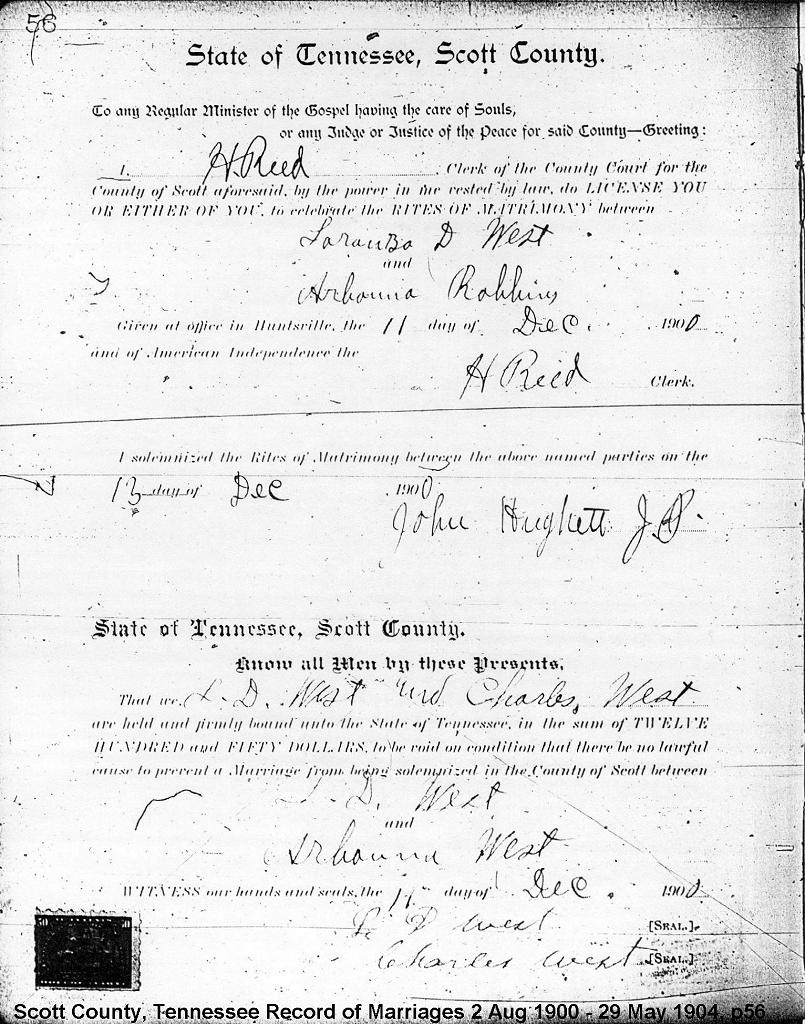 56
State of Tennessee, Scott County.
To any Regular Minister of the Gospel having the care of Souls,
or any Judge or Justice of the Peace for said County—Greeting:
I, H Reed, Clerk of the County Court for the
County of Scott aforesaid, by the power in me vested by law, do LICENSE YOU
OR EITHER OF YOU, to celebrate the RITES OF MATRIMONY between
D West
and
Arbanna Robbins
Given at office in Huntsville, the 11 day of Dec. 1900
and of American Independence the
H Reed Clerk.
I solemnized the Rites of Matrimony between the above named parties on the
13 day of Dec 1900
John Hughett J.P.
State of Tennessee, Scott County.
Know all Men by these Presents,
That we, L. D. West and Charles West
are held and firmly bound unto the State of Tennessee, in the sum of TWELVE
HUNDRED and FIFTY DOLLARS, to be void on condition that there be no lawful
cause to prevent a Marriage from being solemnized in the County of Scott between
L. D. West
and
Arbanna West
WITNESS our hands and seals, the 11 day of Dec. 1900
L. D West [SEAL.]
Charles West [SEAL.]
Scott County, Tennessee Record of Marriages 2 Aug 1900 - 29 May 1904, p56